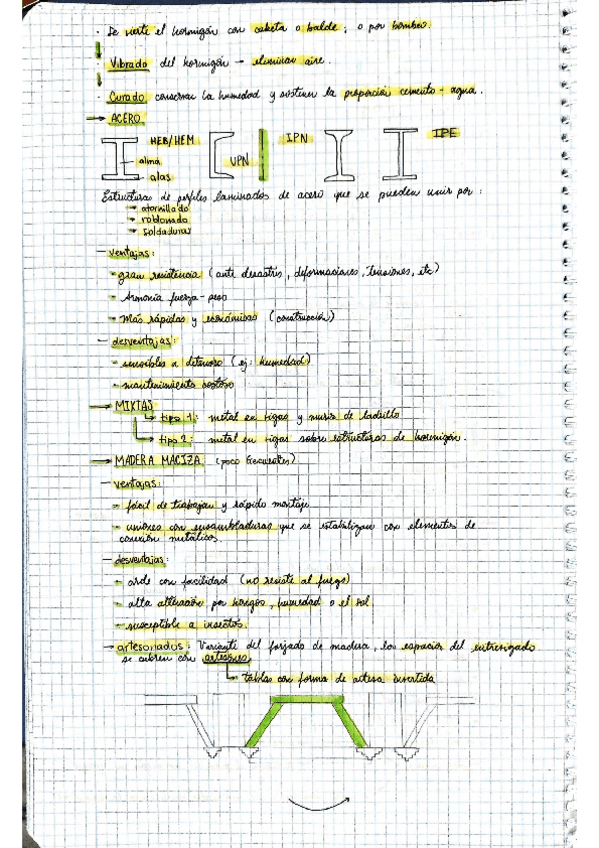 · Se vierte el hormigón con cubeta o balde; o por bombeo.
Vibrado del hormigón → eliminar aire.
Curado conservar la humedad y sostener la proporción cemento - agua.
→ ACERO
HEB/HEM
alma
alas
UPN
IPN
IPE
Estructuras de perfiles laminados de acero que se pueden unir por:
→ atornillado
→ roblonado
→ soldadura
- ventajas:
- gran resistencia (ante desastres, deformaciones, tensiones, etc)
- Armonía fuerza - peso
- Más rápidas y económicas (construcción)
- desventajas:
- sensibles a deterioro (ej: humedad)
- mantenimiento costoso
→ MIXTAS
→ tipo 1: metal en vigas y muros de ladrillo
→ tipo 2: metal en vigas sobre estructuras de hormigón.
→ MADERA MACIZA (poco frecuentes)
- ventajas:
- fácil de trabajar y rápido montaje
- uniones con ensambladuras que se estabilizan con elementos de
conexión metálicos.
- desventajas:
- arde con facilidad (no resiste al fuego)
- alta alteración por hongos, humedad o el sol.
- susceptible a insectos.
→ artesonados: Variante del forjado de madera, los espacios del entrevigado
se cubren con artesones
→ tablas con forma de artesa invertida